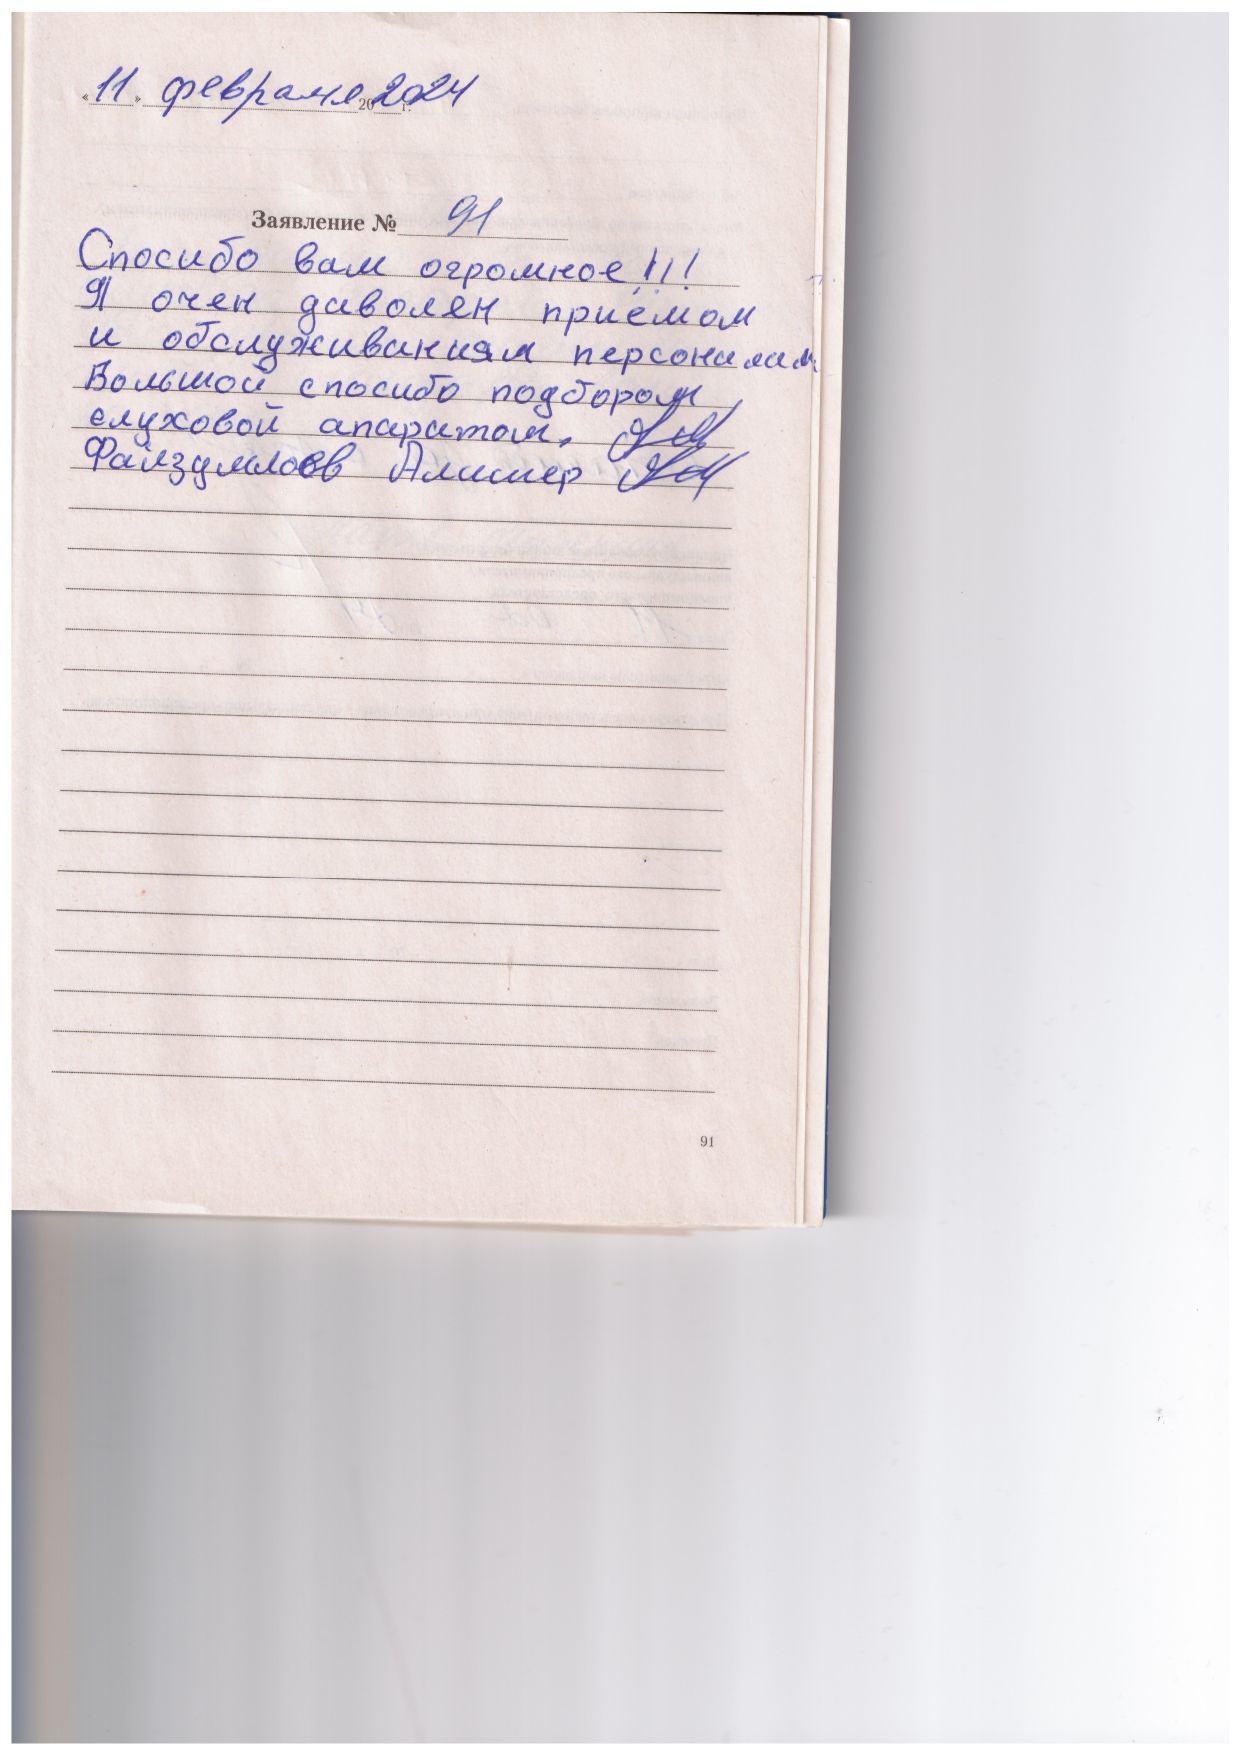 «11» февраля 2024 г.
Заявление № 91
Спосибо вам огромное!!!
Я очен даволен приёмом
и обслуживаниям персоналам
Большой спосибо подбором
слуховой апаратом.
Файзуллоев Алишер
91